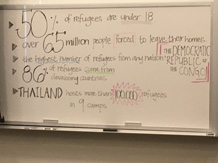 50% of refugees are under 18
over 65 million people forced to leave their homes.
the highest number of refugees from any nation: THE DEMOCRATIC REPUBLIC OF THE CONGO
86% of refugees
developing countries
THAILAND hosts more than 100,000 refugees
in 9 camps